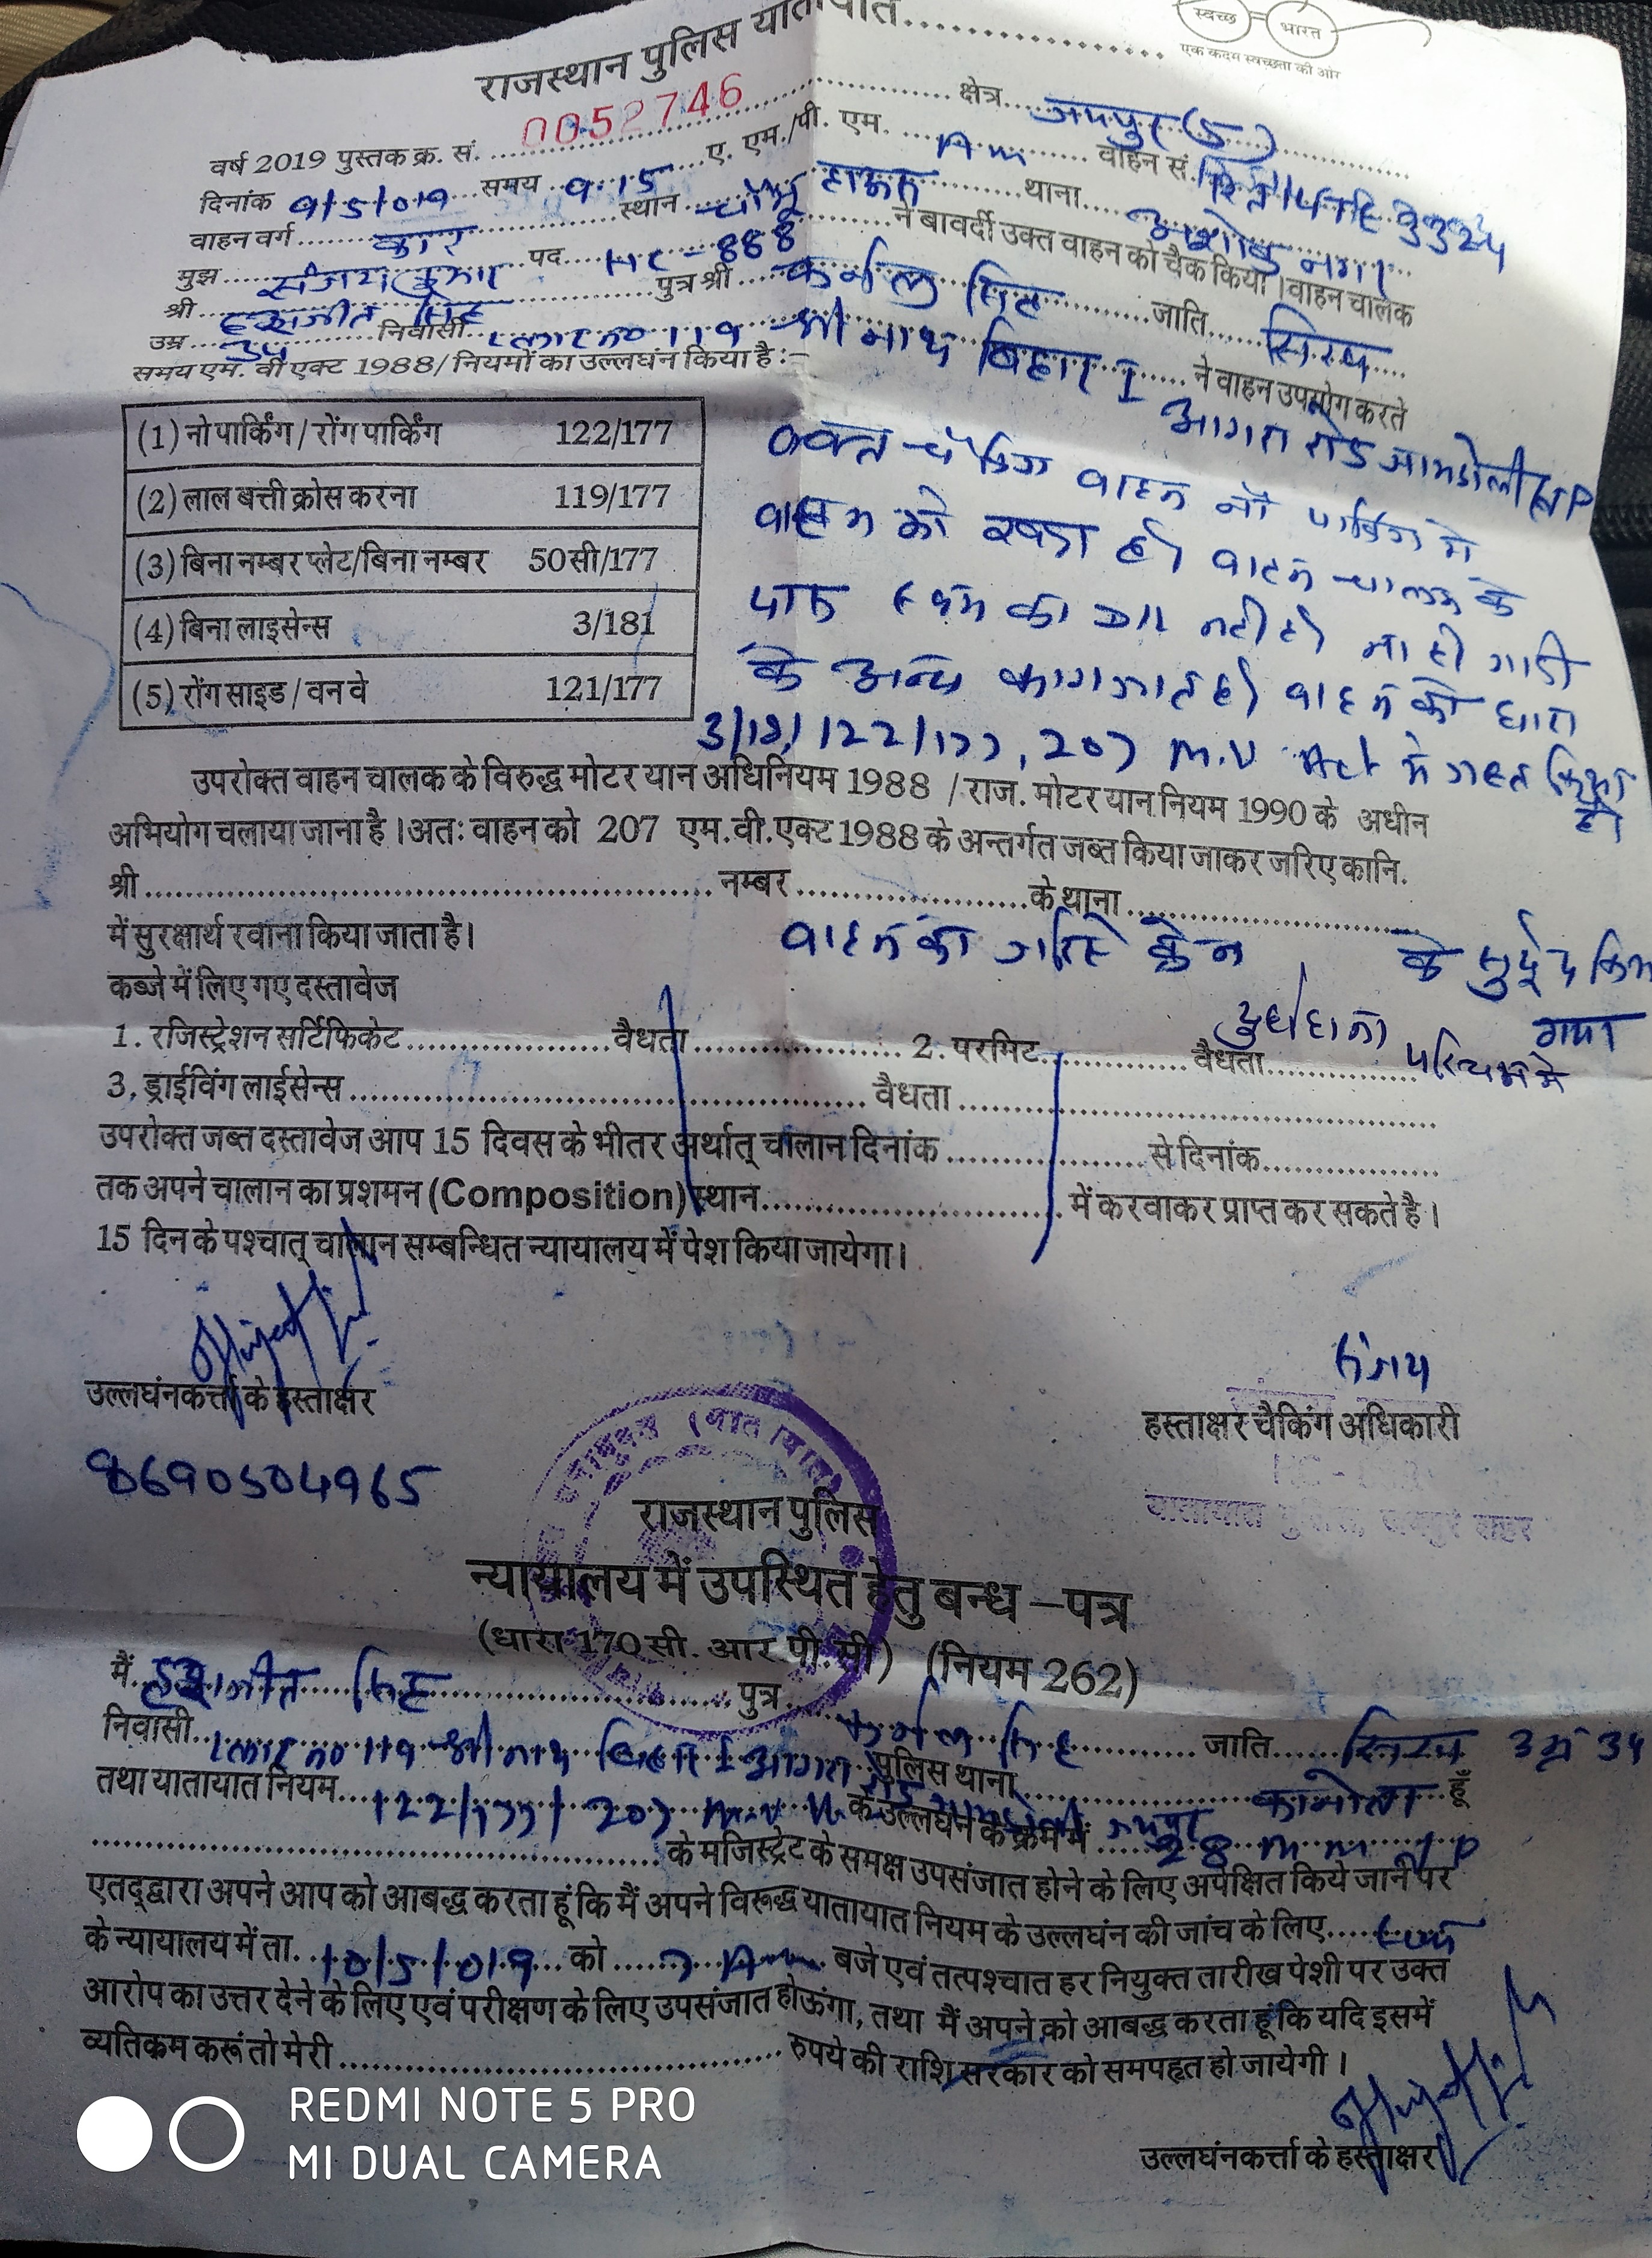 स्वच्छ भारत
एक कदम स्वच्छता की ओर
राजस्थान पुलिस यातायात
0052746
वर्ष 2019 पुस्तक क्र. सं. क्षेत्र जयपुर (S)
दिनांक 9/5/019 समय 9:15 ए. एम./पी. एम. Am वाहन सं.
वाहन वर्ग कार स्थान चौमू हाऊस थाना अशोक नगर
मुझ संजय कुमार पद HC-888 ने बावर्दी उक्त वाहन को चैक किया। वाहन चालक
श्री हरजीत सिंह पुत्र श्री कर्नल सिंह जाति सिख
उम्र 34 निवासी प्लाट no 119 श्री नाथ विहार I ने वाहन उपयोग करते
आगरा रोड जामडोली JP
समय एम. वी एक्ट 1988/ नियमों का उल्लघंन किया है :-
(1) नो पार्किंग / रोंग पार्किंग 122/177
(2) लाल बत्ती क्रोस करना 119/177
(3) बिना नम्बर प्लेट/बिना नम्बर 50सी/177
(4) बिना लाइसेन्स 3/181
(5) रोंग साइड / वन वे 121/177
वक्त चैकिंग वाहन नो पार्किंग में
वाहन को खडा है। वाहन चालक के
पास नही है। ना ही गाडी
के अन्य कागजात है। वाहन को धारा
3/181, 122/177, 207 M.V Act मे जब्त किया
है।
उपरोक्त वाहन चालक के विरुद्ध मोटर यान अधिनियम 1988 / राज. मोटर यान नियम 1990 के अधीन
अभियोग चलाया जाना है। अतः वाहन को 207 एम.वी.एक्ट 1988 के अन्तर्गत जब्त किया जाकर जरिए कानि.
श्री नम्बर के थाना
में सुरक्षार्थ रवाना किया जाता है।
वाहन को क्रेन के सुपुर्द किया
गया
कब्जे में लिए गए दस्तावेज
1. रजिस्ट्रेशन सर्टिफिकेट वैधता 2. परमिट वैधता
3. ड्राईविंग लाईसेन्स वैधता
उपरोक्त जब्त दस्तावेज आप 15 दिवस के भीतर अर्थात् चालान दिनांक से दिनांक
तक अपने चालान का प्रशमन (Composition) स्थान में करवाकर प्राप्त कर सकते है।
15 दिन के पश्चात् चालान सम्बन्धित न्यायालय में पेश किया जायेगा।
संजय
उल्लघंनकर्त्ता के हस्ताक्षर
हस्ताक्षर चैकिंग अधिकारी
8690504965
यातायात पुलिस, जयपुर शहर
राजस्थान पुलिस
न्यायालय में उपस्थित हेतु बन्ध –पत्र
(धारा 170 सी. आर पी. सी) (नियम 262)
मैं हरजीत सिंह पुत्र कर्नल सिंह जाति सिख उम्र 34
निवासी प्लाट no 119 श्री नाथ विहार I आगरा रोड पुलिस थाना कानोता हूँ
तथा यातायात नियम 122/177/207 M.V के उल्लघंन के क्रम में 28 m m JP
के मजिस्ट्रेट के समक्ष उपसंजात होने के लिए अपेक्षित किये जाने पर
एतद्द्वारा अपने आप को आबद्ध करता हूं कि मैं अपने विरूद्ध यातायात नियम के उल्लघंन की जांच के लिए
के न्यायालय में ता. 10/5/019 को 7 Am बजे एवं तत्पश्चात हर नियुक्त तारीख पेशी पर उक्त
आरोप का उत्तर देने के लिए एवं परीक्षण के लिए उपसंजात होऊंगा, तथा मैं अपने को आबद्ध करता हूं कि यदि इसमें
व्यतिकम करूं तो मेरी रुपये की राशि सरकार को समपहृत हो जायेगी।
उल्लघंनकर्त्ता के हस्ताक्षर
REDMI NOTE 5 PRO
MI DUAL CAMERA